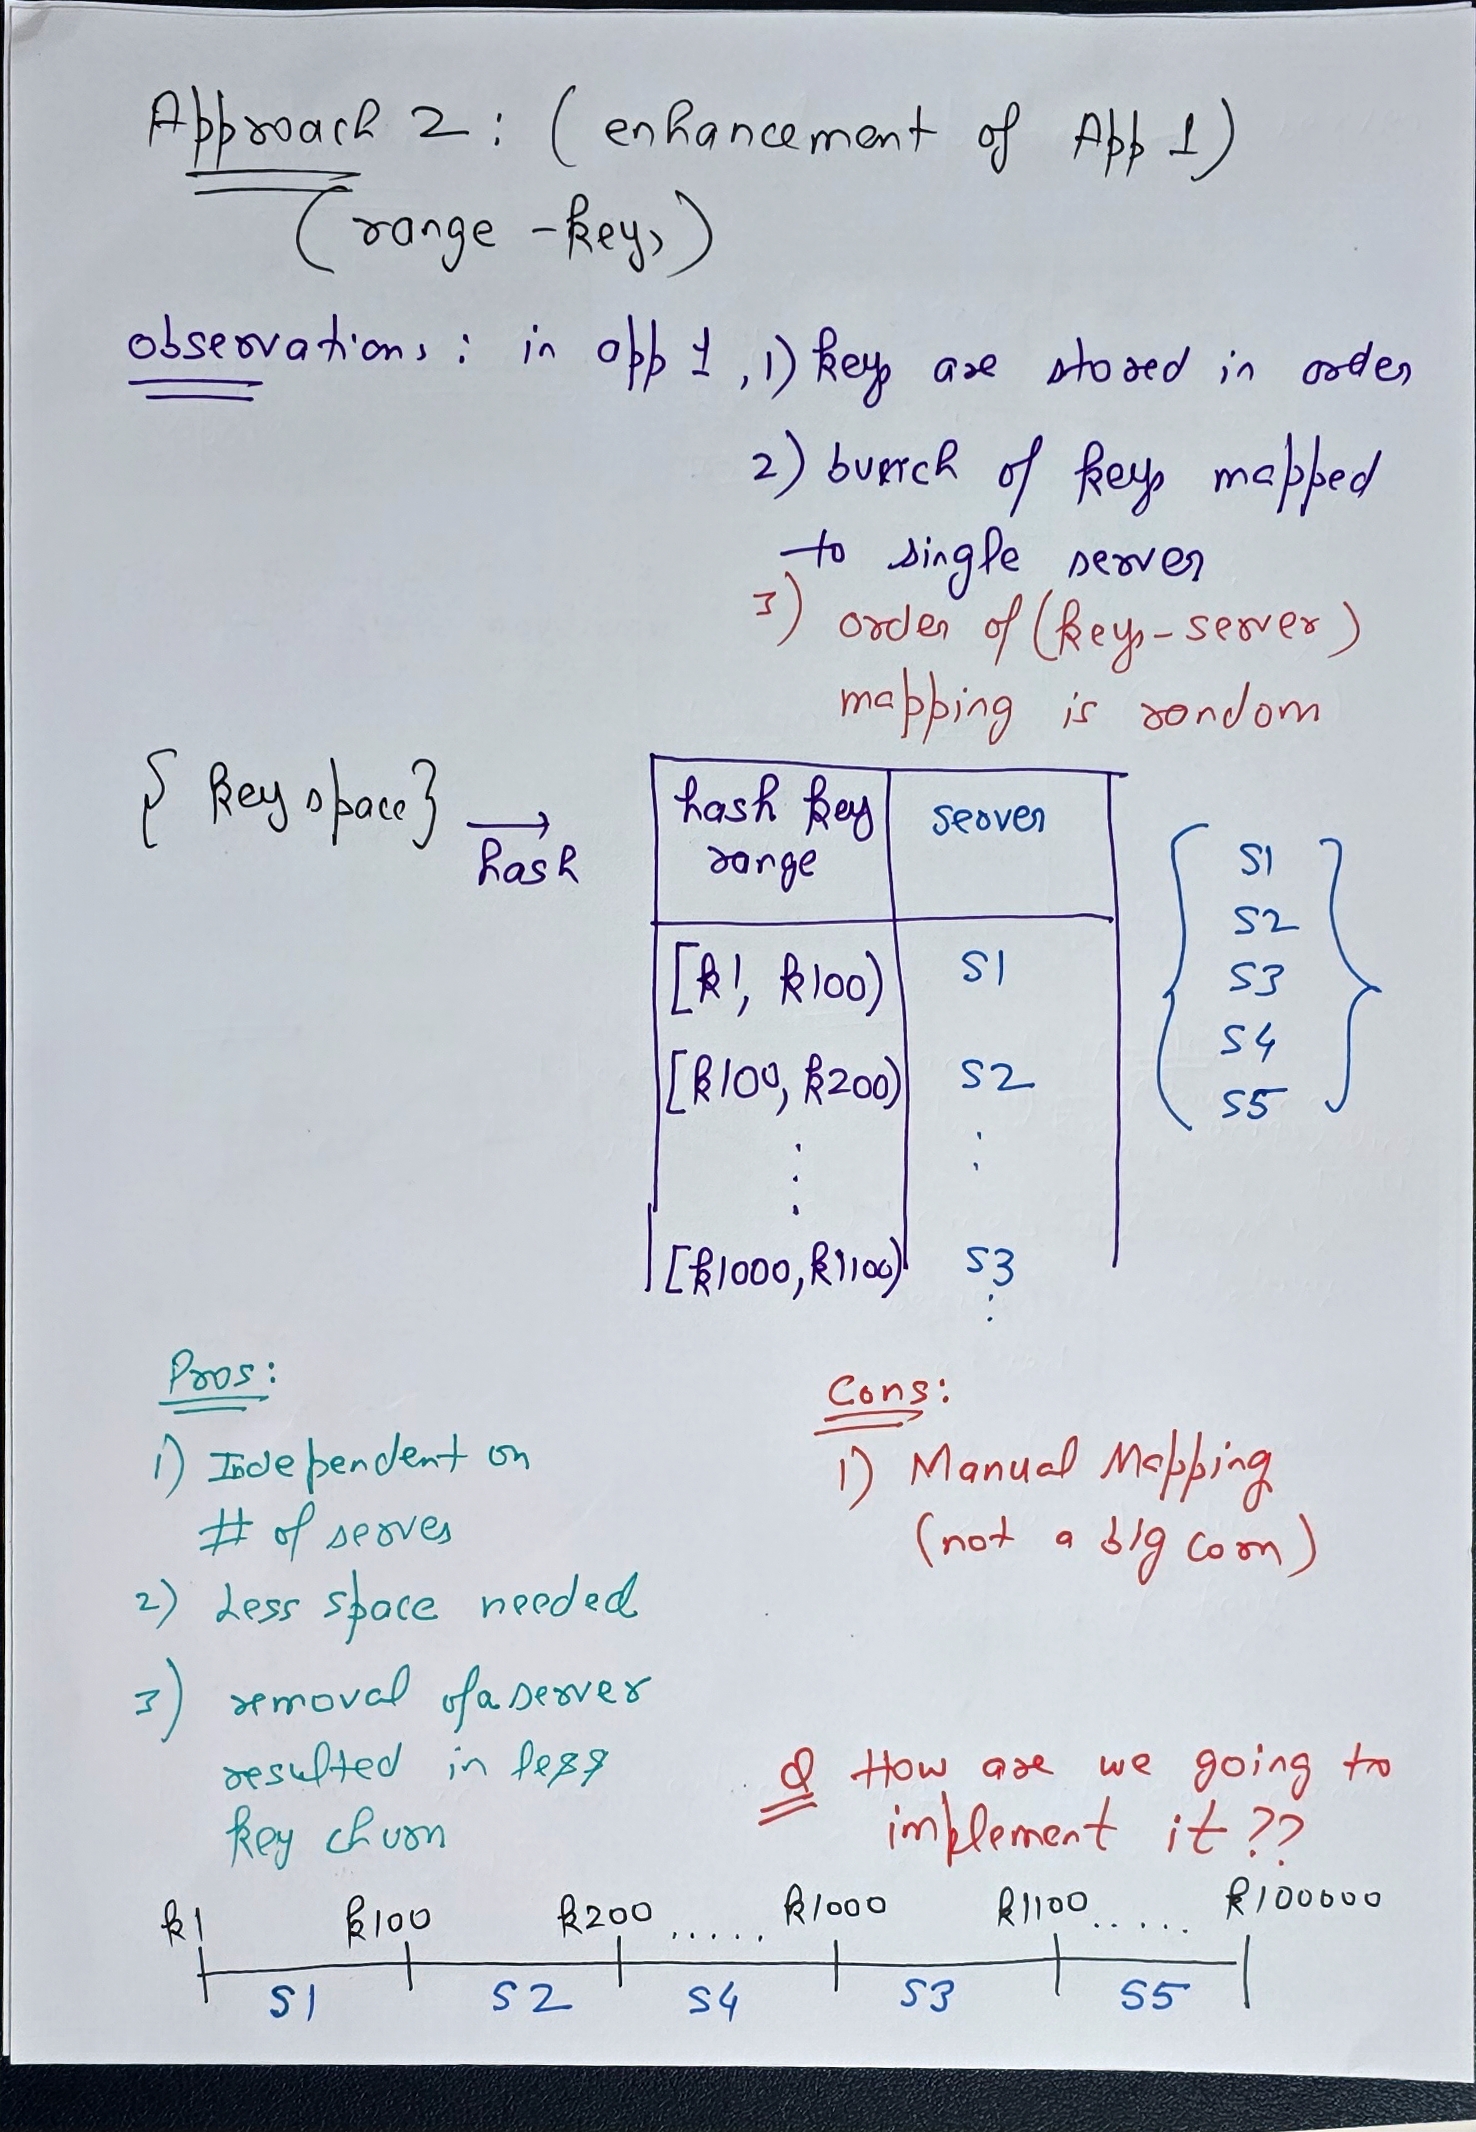 Approach 2 : ( enhancement of App 1 )
( range - keys )
observations : in app 1 , 1) keys are stored in order
2) bunch of keys mapped
to single server
3) order of (keys - server)
mapping is random
{ key space } → hash
hash key range | server
[k1, k100) | S1
[k100, k200) | S2
⋮ | ⋮
[k1000, k1100) | S3
⋮
{ S1
S2
S3
S4
S5 }
Pros :
1) Independent on
# of serves
2) Less space needed
3) removal of a server
resulted in less
key churn
Cons :
1) Manual Mapping
(not a big con)
Q How are we going to
implement it ??
k1 k100 k200 ..... k1000 k1100 ..... k100000
S1 S2 S4 S3 S5